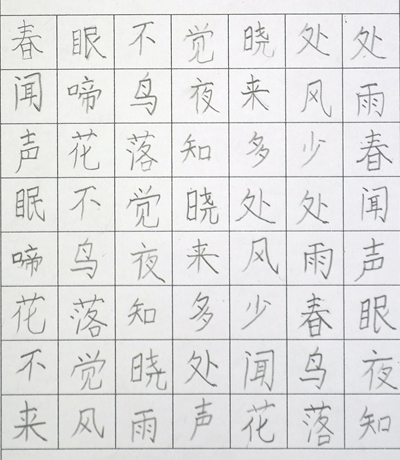 春眠不觉晓处处
闻啼鸟夜来风雨
声花落知多少春
眠不觉晓处处闻
啼鸟夜来风雨声
花落知多少春眠
不觉晓处闻鸟夜
来风雨声花落知